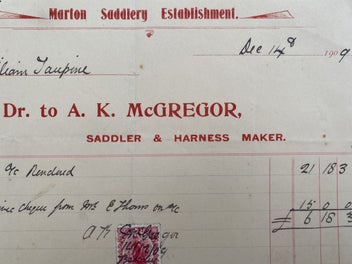 Marton Saddlery Establishment.
Dec 14th 1909
Dr. to A. K. McGREGOR,
SADDLER & HARNESS MAKER.
a/c Rendered 21 18 3
Cheque from Mrs E Thoms on a/c 15 0 0
£ 6 18 3
A K McGregor
14/12/09